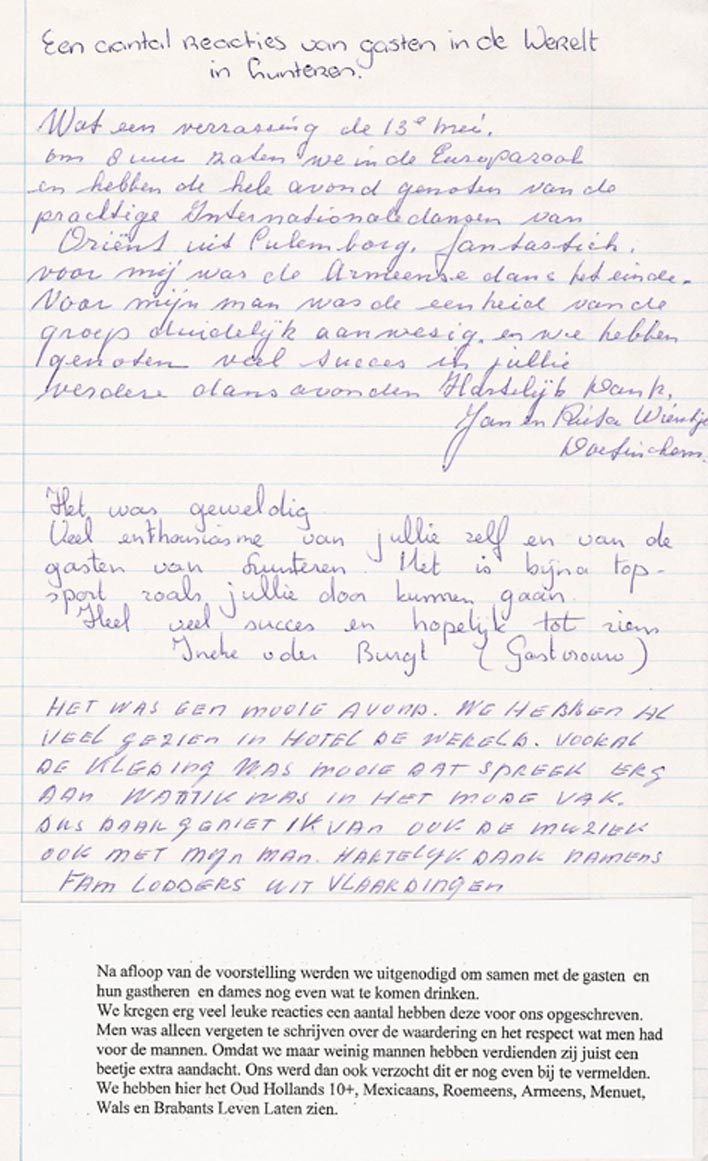 Een aantal reacties van gasten in de Werelt
in Lunteren.
Wat een verrassing de 13e mei.
om 8 uur zaten we in de Europazaal
en hebben de hele avond genoten van de
prachtige Internationale dansen van
Oriënt uit Culemborg. fantastisch.
voor mij was de Armeense dans het einde.
Voor mijn man was de eenheid van de
groep duidelijk aanwezig. en we hebben
genoten veel succes in jullie
verdere dansavonden Hartelijk Dank.
Jan en Rieta
Doetinchem.
Het was geweldig
Veel enthousiasme van jullie zelf en van de
gasten van Lunteren. Het is bijna top-
sport zoals jullie door kunnen gaan.
Heel veel succes en hopelijk tot ziens
Ineke v der Burgt (Gastvrouw)
HET WAS EEN MOOIE AVOND. WE HEBBEN AL
VEEL GEZIEN IN HOTEL DE WERELD. VOORAL
DE KLEDING WAS MOOIE DAT SPREEK ERG
AAN WANT IK WAS IN HET MODE VAK.
DUS DAAR GENIET IK VAN OOK DE MUZIEK
OOK MET MIJN MAN. HARTELYK DANK NAMENS
FAM LODDERS UIT VLAARDINGEN
Na afloop van de voorstelling werden we uitgenodigd om samen met de gasten en
hun gastheren en dames nog even wat te komen drinken.
We kregen erg veel leuke reacties een aantal hebben deze voor ons opgeschreven.
Men was alleen vergeten te schrijven over de waardering en het respect wat men had
voor de mannen. Omdat we maar weinig mannen hebben verdienden zij juist een
beetje extra aandacht. Ons werd dan ook verzocht dit er nog even bij te vermelden.
We hebben hier het Oud Hollands 10+, Mexicaans, Roemeens, Armeens, Menuet,
Wals en Brabants Leven Laten zien.